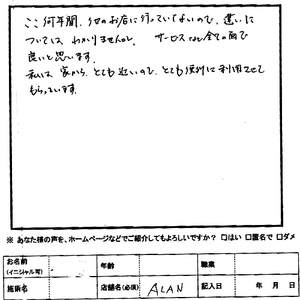 ここ何年間、他のお店に行っていないので、違いに
ついては わかりませんが、サービスなど全ての面で
良いと思います。
私は、家から、とても近いので、とても便利に利用させて
もらっています。
※ あなた様の声を、ホームページなどでご紹介してもよろしいですか？ □はい □匿名で □ダメ
お名前 年齢 職業
(イニシャル可)
施術名 店舗名(必須) ALAN 記入日 年 月 日